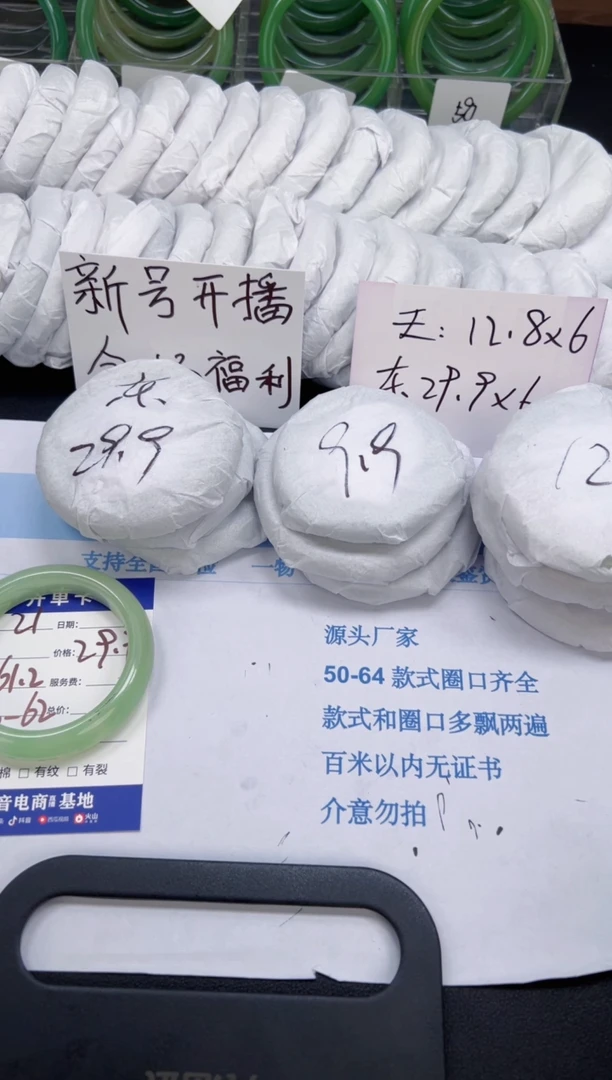 50
新号开播
福利
天: 12.8x6
灰. 29.9x6
灰
29.9
9.9
12
支持全国
一物
开单卡
21 日期:
价格: 29.
61.2 服务费:
-62 总价:
棉 □ 有纹 □ 有裂
音电商直播基地
抖音 西瓜视频 火山
源头厂家
50-64 款式圈口齐全
款式和圈口多飘两遍
百米以内无证书
介意勿拍